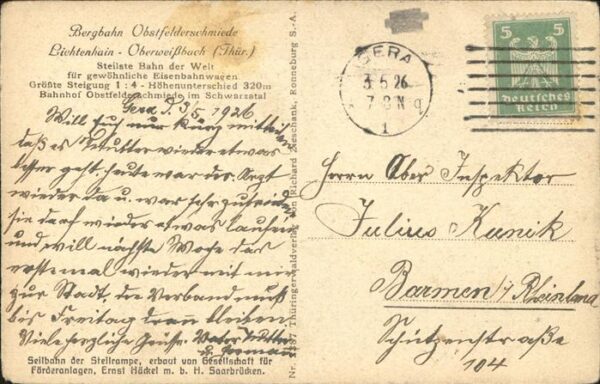 Bergbahn Obstfelderschmiede
Lichtenhain - Oberweißbach (Thür.)
Steilste Bahn der Welt
für gewöhnliche Eisenbahnwagen
Größte Steigung 1:4 - Höhenunterschied 320m
Bahnhof Obstfelderschmiede im Schwarzatal
Gera d. 3/5. 1926
Will Euch nur kurz mitteilen
daß es Mutter wieder etwas
besser geht, heute war der Arzt
wieder da u. war sehr zufrieden
sie darf wieder etwas laufen
und will nächste Woche das
erstemal wieder mit mir
zur Stadt, der Verband muß
bis Freitag dran bleiben
Viele herzliche Grüße. Vater Mutter
Seilbahn der Steilrampe, erbaut von Gesellschaft für
Förderanlagen, Ernst Häckel m. b. H. Saarbrücken.
Thüringerwaldverlag von Richard Zeschank, Sonneburg S.-A.
GERA
3.5.26
7-8 N
1
5 5
Deutsches
Reich
Herrn Ober Inspektor
Julius Kunik
Barmen i/ Rheinland
Schützenstraße
104